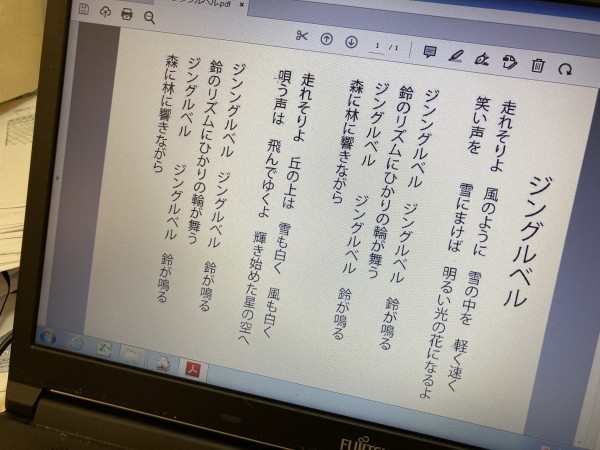 ングルベル.pdf ×
1 / 1
ジングルベル
走れそりよ　風のように　雪の中を　軽く速く
笑い声を　雪にまけば　明るい光の花になるよ
ジンングルベル　ジングルベル　鈴が鳴る
鈴のリズムにひかりの輪が舞う
ジングルベル　ジングルベル　鈴が鳴る
森に林に響きながら
走れそりよ　丘の上は　雪も白く　風も白く
唄う声は　飛んでゆくよ　輝き始めた星の空へ
ジンングルベル　ジングルベル　鈴が鳴る
鈴のリズムにひかりの輪が舞う
ジングルベル　ジングルベル　鈴が鳴る
森に林に響きながら
FUJITSU